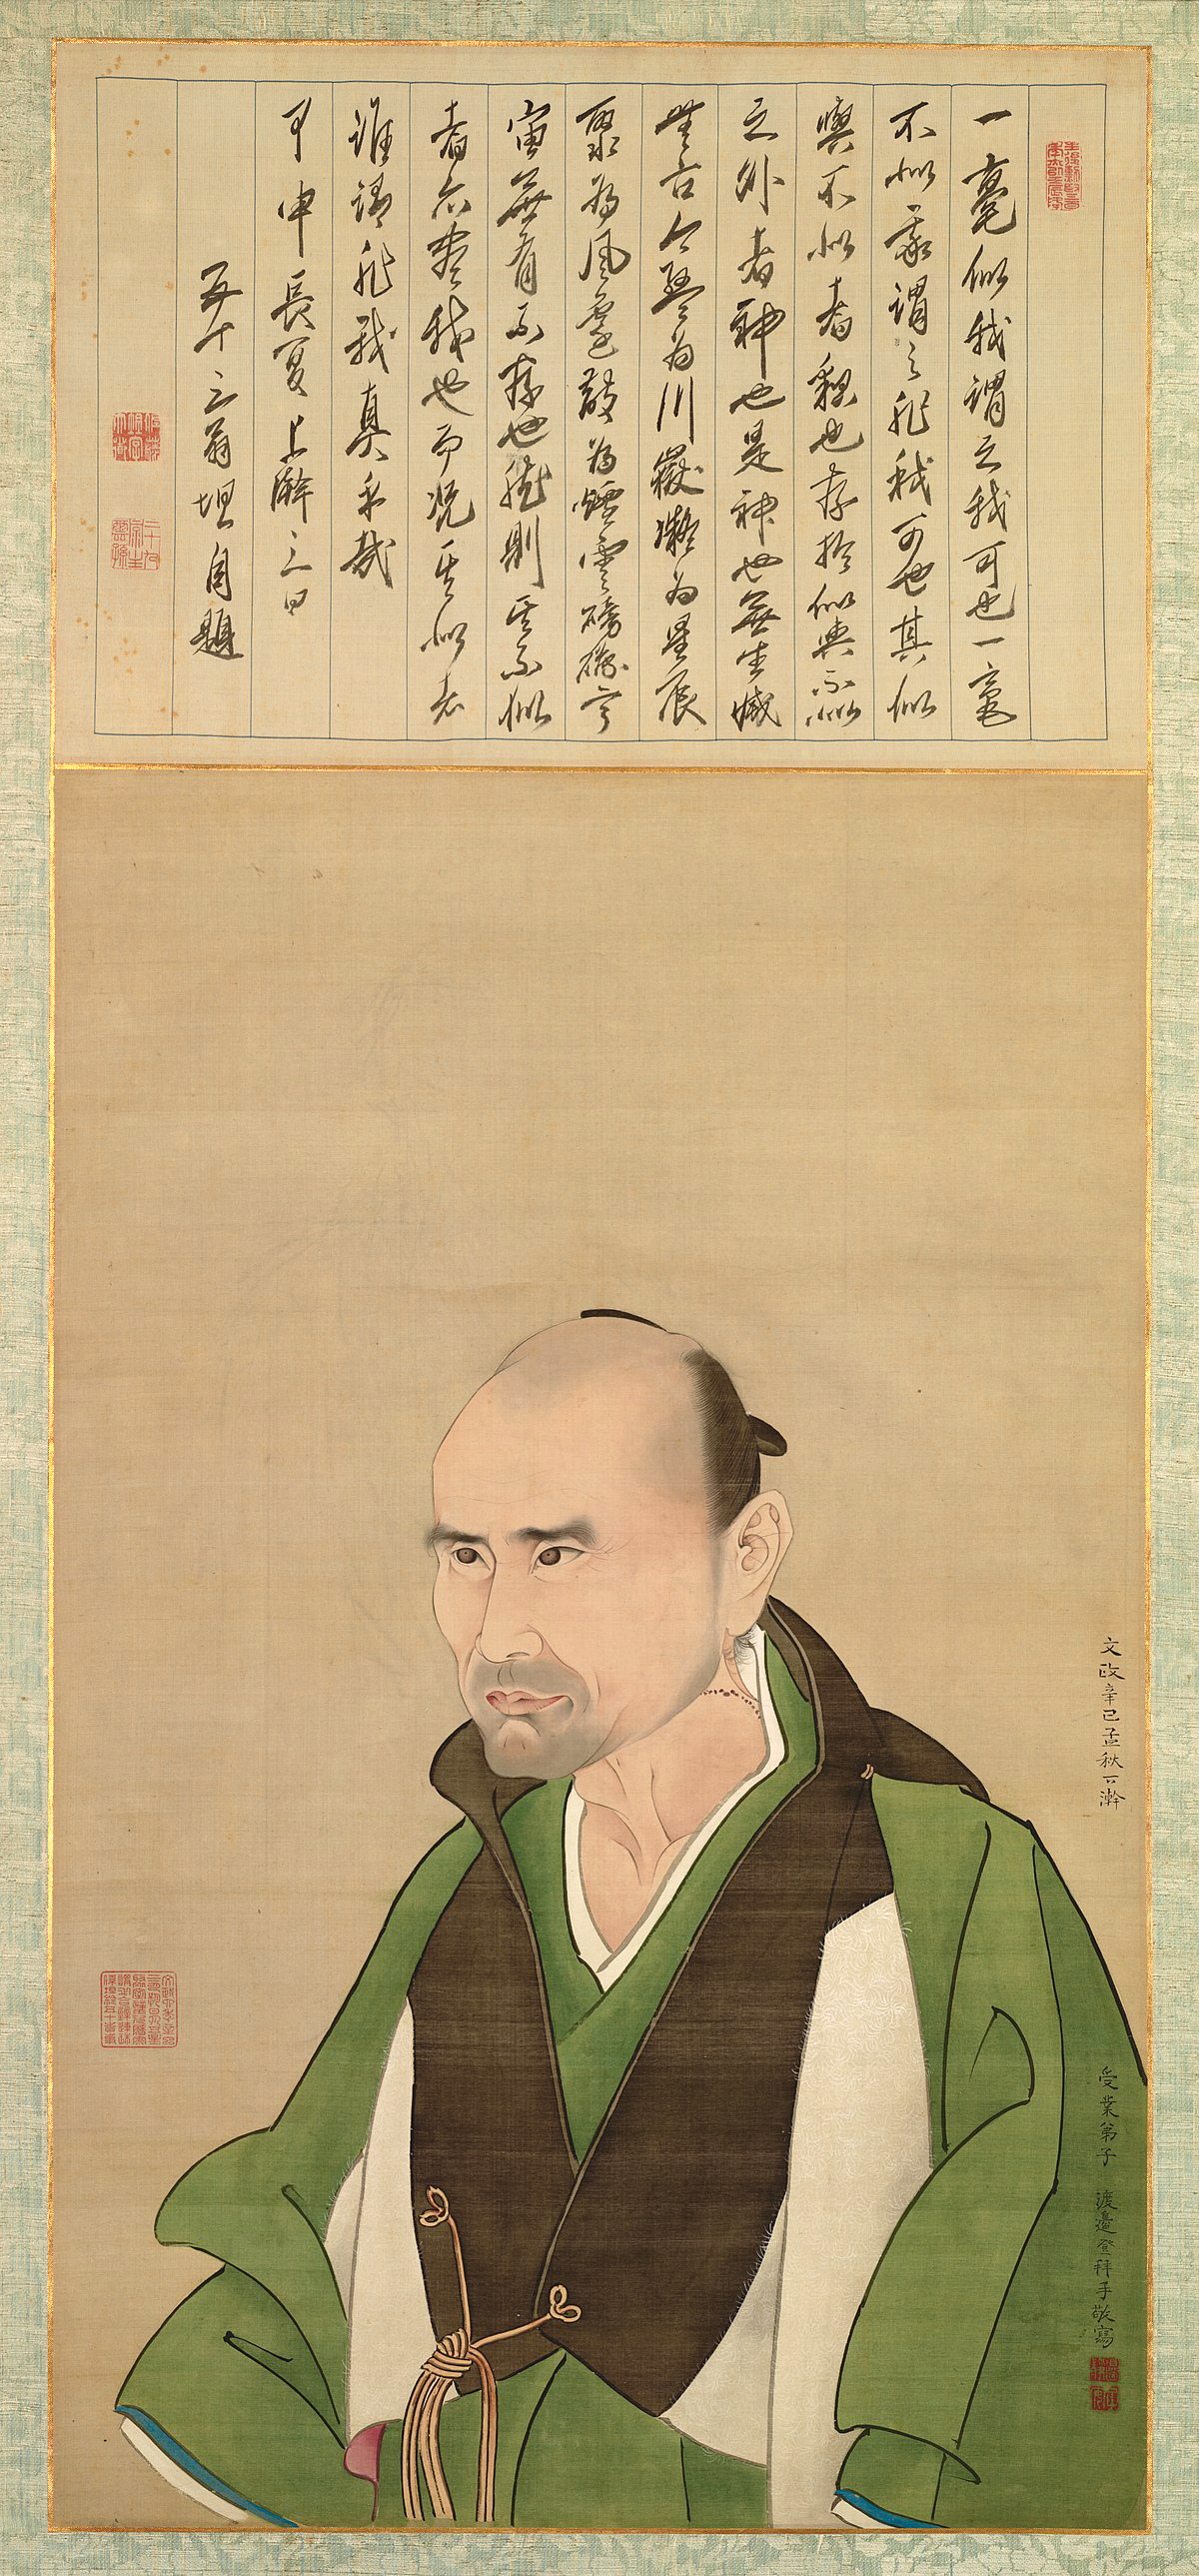 一毫似我謂之我可也一毫
不似我謂之非我可也其似
與不似者貌也存於似與不似
之外者神也是神也無生滅
無古今為川嶽凝為星辰
聚為風霆散為煙雲磅礴宇
宙無有不存也然則其不似
者亦盡我也而況其似者
誰謂非我真乎哉
甲申長夏上澣之日
五十三翁坦自題
文政辛巳孟秋下澣
受業弟子 渡邉登拜手敬寫